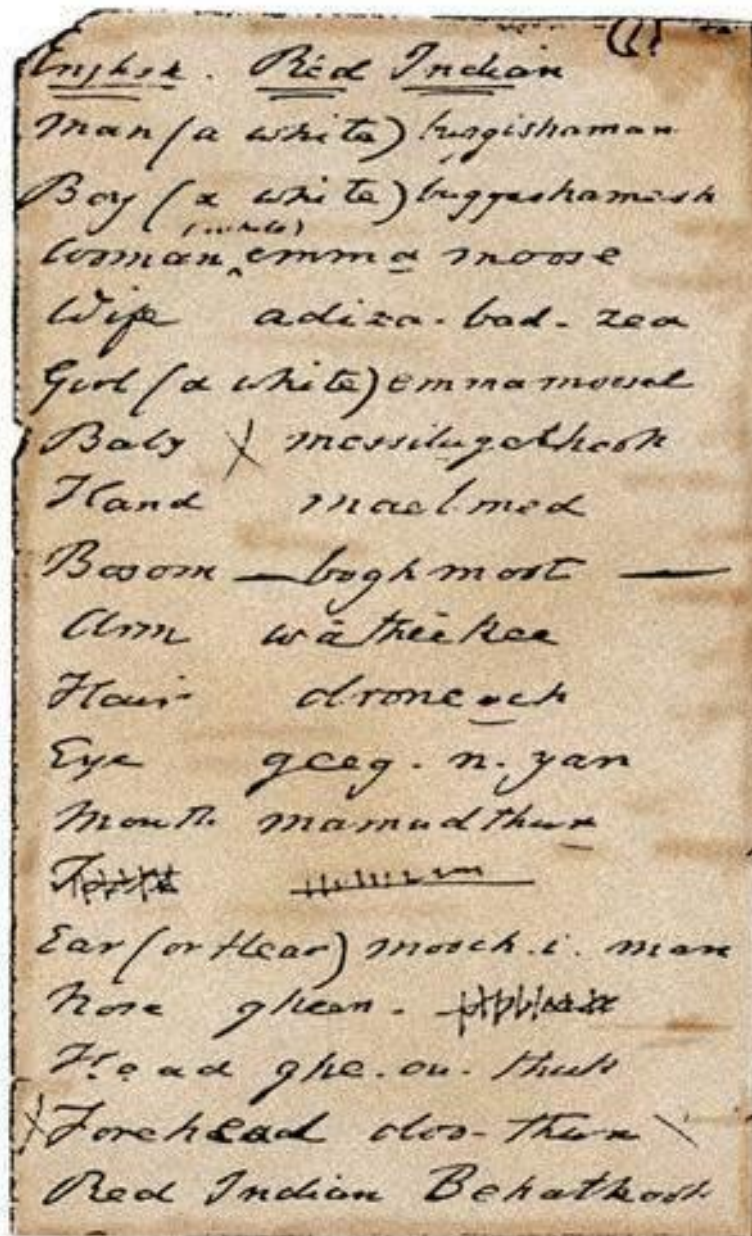 English. Red Indian
Man (a white) bugishaman
Boy (a white) buggishamish
(white)
Woman emma moose
Wife adiza-bad-zea
Girl (a white) emmamooset
Baby X messiliget-hook
Hand maelmed
Bosom — boghmoot —
Arm wātheekee
Hair droneoch
Eye geeg.n.yan
Mouth mamudthun
Ear (or Hear) mooch.i.man
Nose gheen.
Head ghe.ou.thuk
X Forehead doo-thun \
Red Indian Behathook